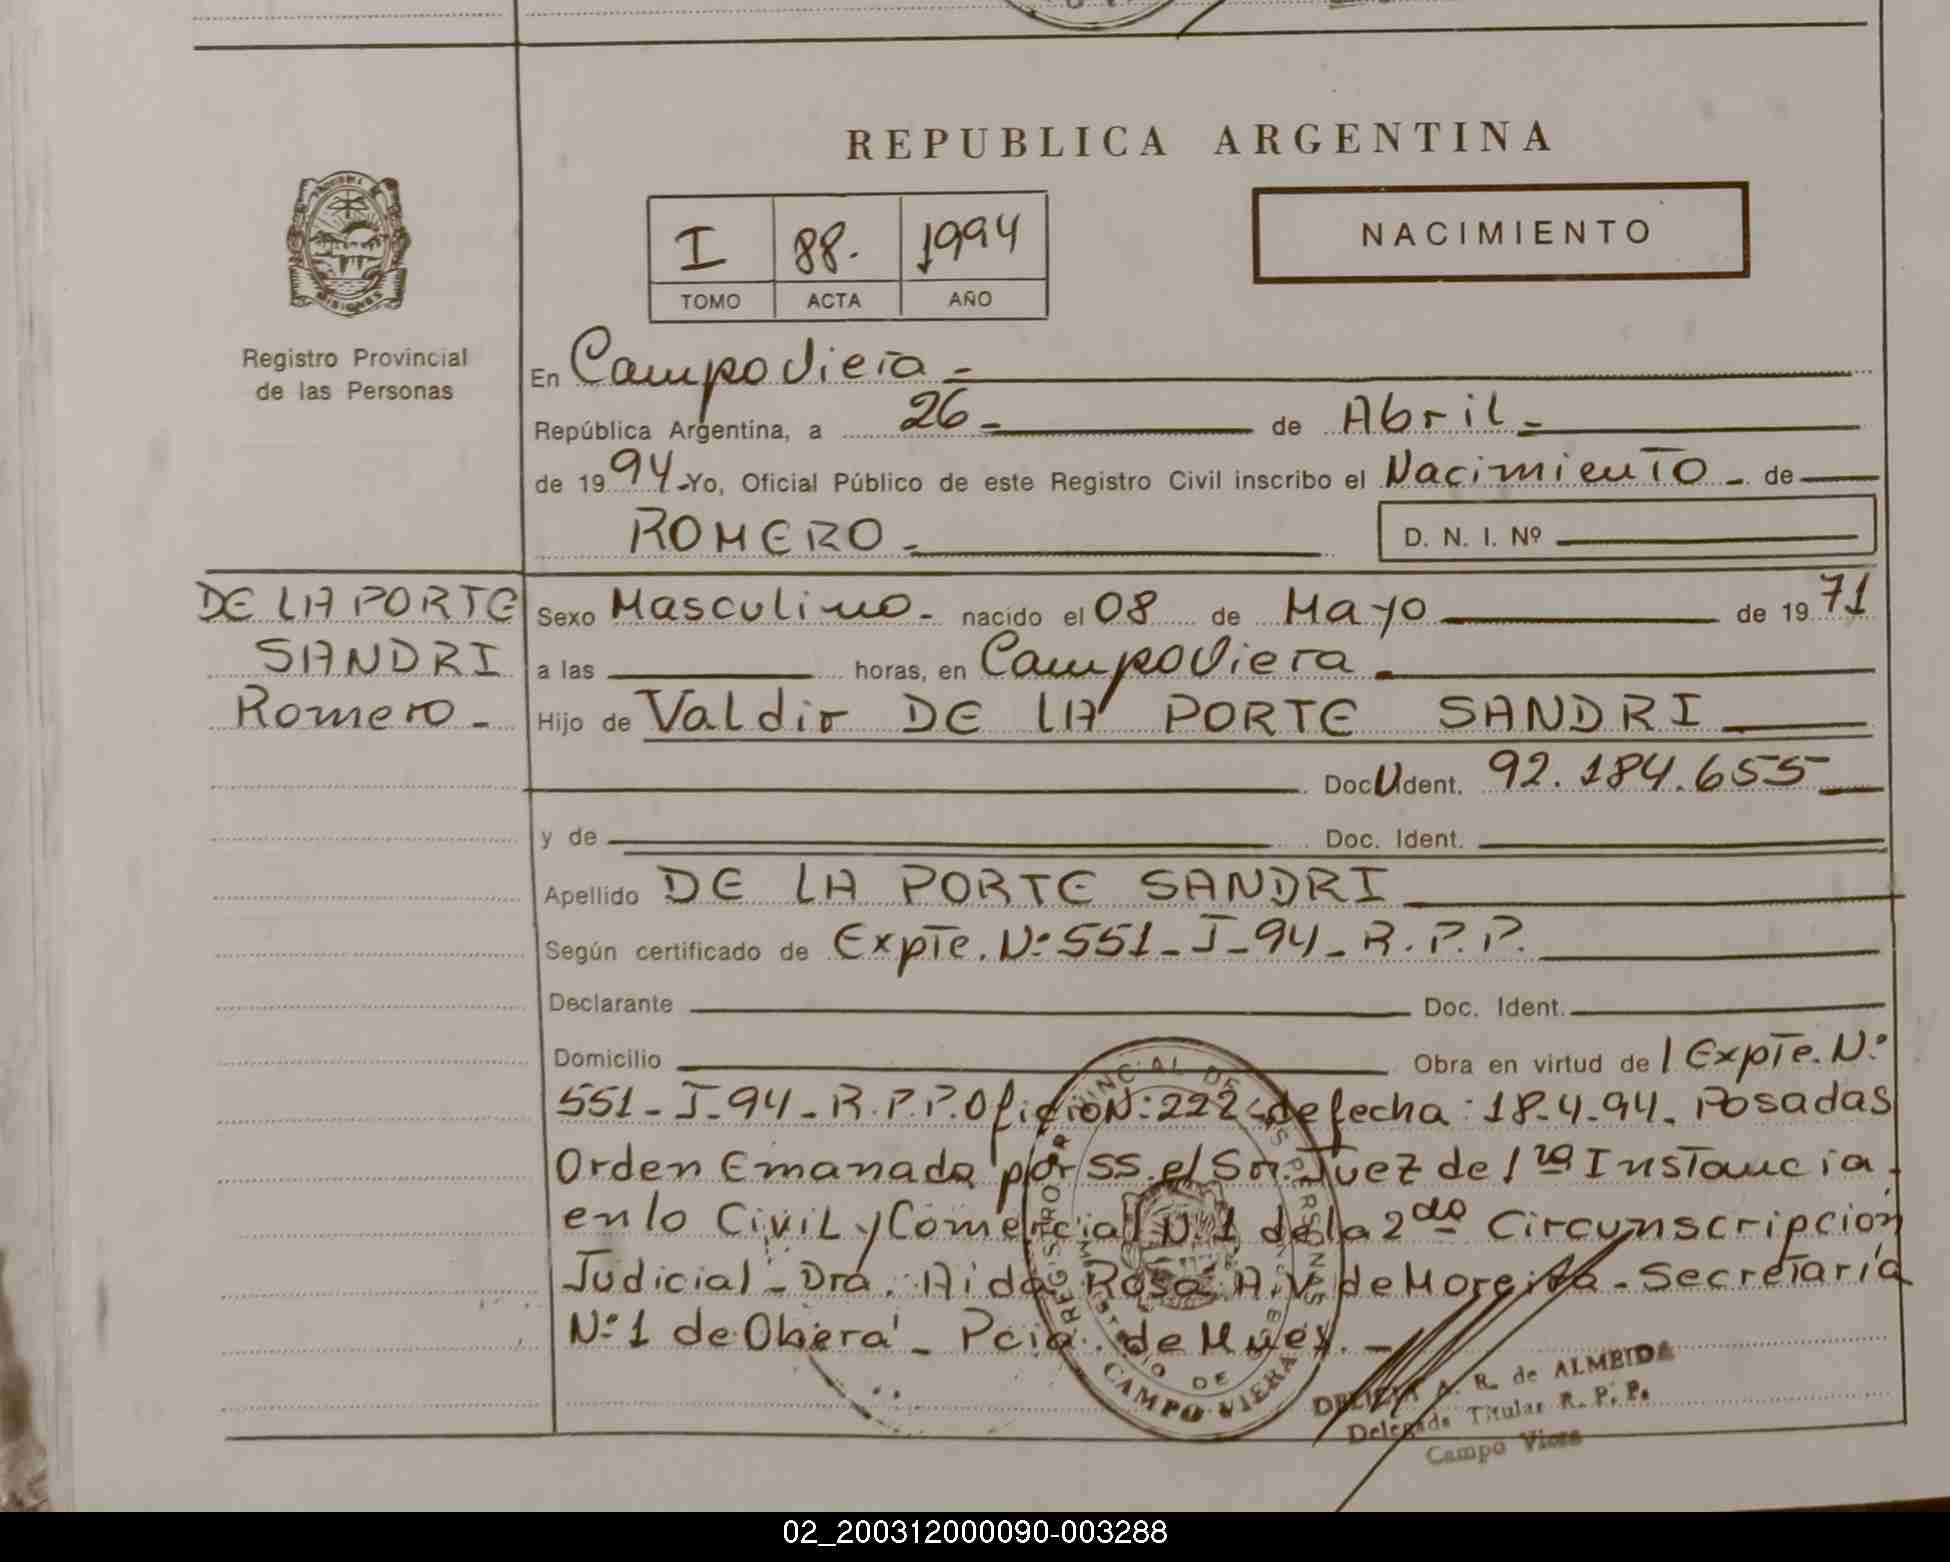 REPUBLICA ARGENTINA
NACIMIENTO
I 88. 1994
TOMO ACTA AÑO
MISIONES
Registro Provincial
de las Personas
En Campo Viera -
República Argentina, a 26 - de Abril -
de 1994 - Yo, Oficial Público de este Registro Civil inscribo el Nacimiento - de
ROMERO - D. N. I. Nº
DE LA PORTE
SANDRI
Romero -
Sexo Masculino - nacido el 08 de Mayo de 1971
a las horas, en Campo Viera -
Hijo de Valdir DE LA PORTE SANDRI
DocUdent. 92.184.655
y de Doc. Ident.
Apellido DE LA PORTE SANDRI
Según certificado de Expte. Nº 551 - J - 94 - R. P. P.
Declarante Doc. Ident.
Domicilio Obra en virtud de / Expte. Nº
551 - J - 94 - R. P. P. Oficio Nº 222 - de fecha: 18-4-94. Posadas
Orden Emanada por SS. el Sr. Juez de 1ra Instancia
en lo Civil y Comercial Nº 1 de la 2da Circunscripción
Judicial - Dra. Aida Rosa A. V. de Moreira - Secretaría
Nº 1 de Oberá - Pcia. de Mnes. -
REGISTRO PROVINCIAL DE LAS PERSONAS
CAMPO VIERA
A. R. de ALMEIDA
Delegada Titular R. P. P.
Campo Viera
02_200312000090-003288